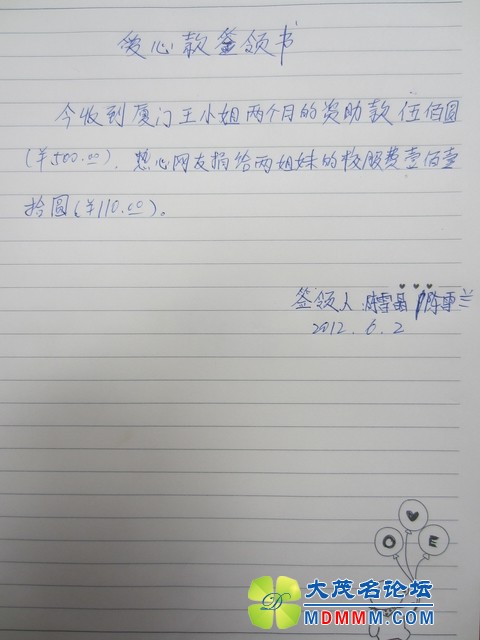 爱心款签领书
今收到厦门王小姐两个月的资助款伍佰圆
(￥500.00)，热心网友捐给两姐妹的校服费壹佰壹
拾圆(￥110.00)。
签领人:陈雪晶 陈重兰
2012.6.2
O E
大茂名论坛
MDMMM.COM